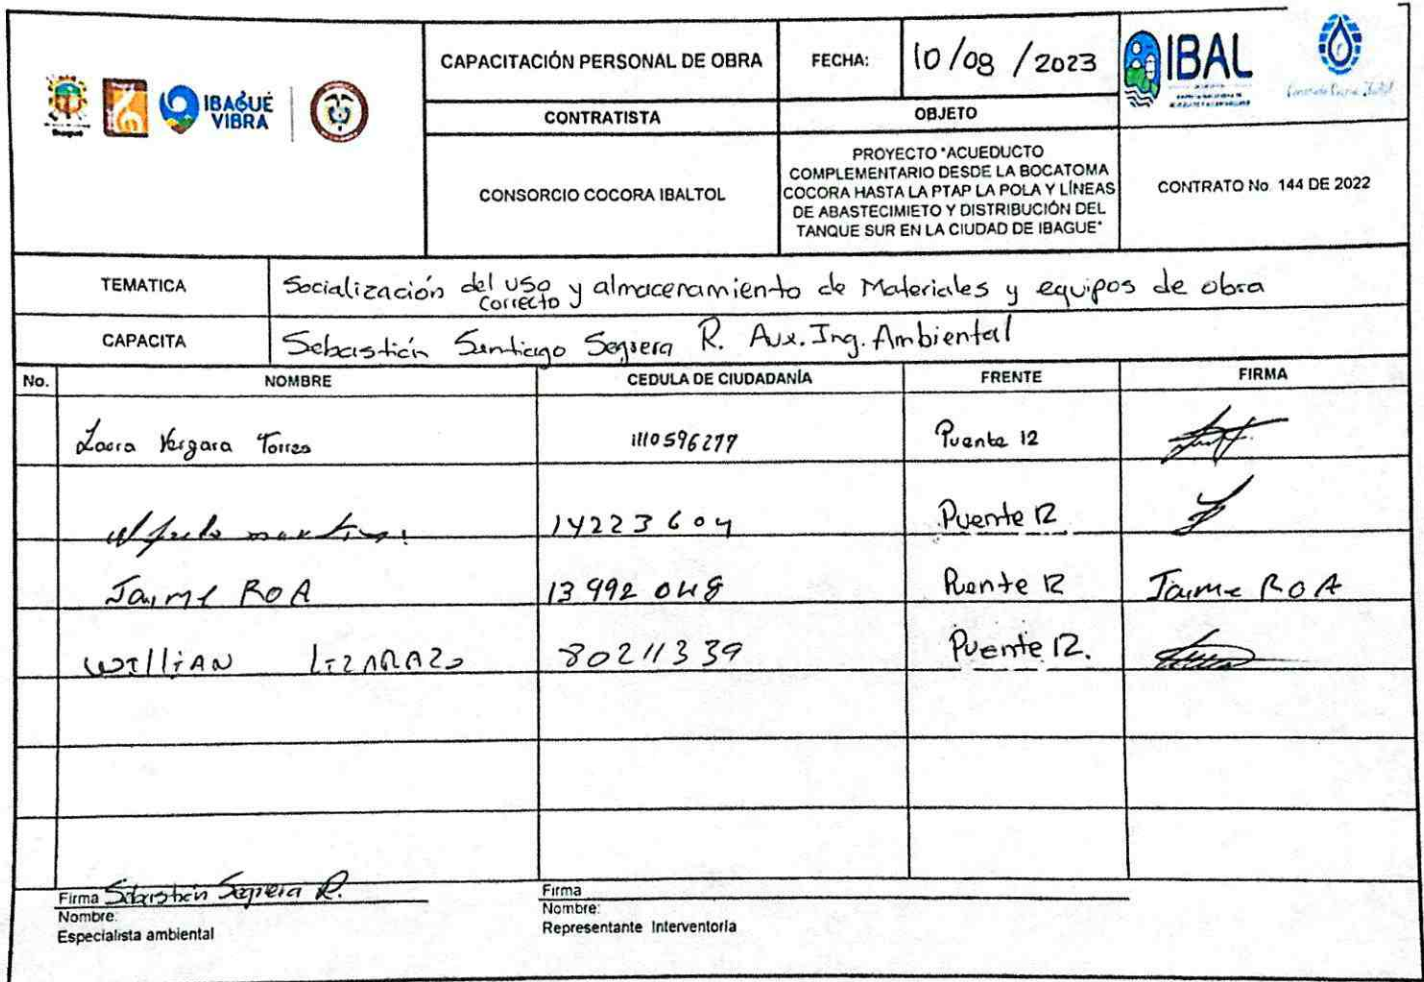 CAPACITACIÓN PERSONAL DE OBRA
FECHA:
10/08/2023
IBAL
Ibagué
IBAGUÉ
VIBRA
CONTRATISTA
OBJETO
CONSORCIO COCORA IBALTOL
PROYECTO "ACUEDUCTO
COMPLEMENTARIO DESDE LA BOCATOMA
COCORA HASTA LA PTAP LA POLA Y LÍNEAS
DE ABASTECIMIETO Y DISTRIBUCIÓN DEL
TANQUE SUR EN LA CIUDAD DE IBAGUE"
CONTRATO No. 144 DE 2022
TEMATICA
Socialización del uso y almacenamiento de Materiales y equipos de obra
correcto
CAPACITA
Sebastián Santiago Segrera R. Aux. Ing. Ambiental
No. NOMBRE CEDULA DE CIUDADANÍA FRENTE FIRMA
Laura Vergara Torres 1110596277 Puente 12
Alfredo martinez 14223604 Puente 12
Jaime ROA 13992048 Puente 12 Jaime ROA
WILLIAN LIZARAZO 80211339 Puente 12.
Firma Sebastián Segrera R.
Nombre:
Especialista ambiental
Firma
Nombre:
Representante Interventoría